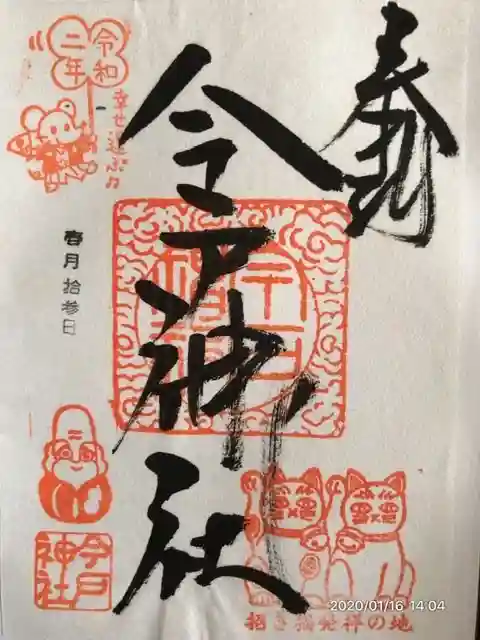 奉拝
今戸神社
令和
二年
幸せ運ぶ♫
月拾参日
今戸
神社
招き猫発祥の地
2020/01/16 14:04